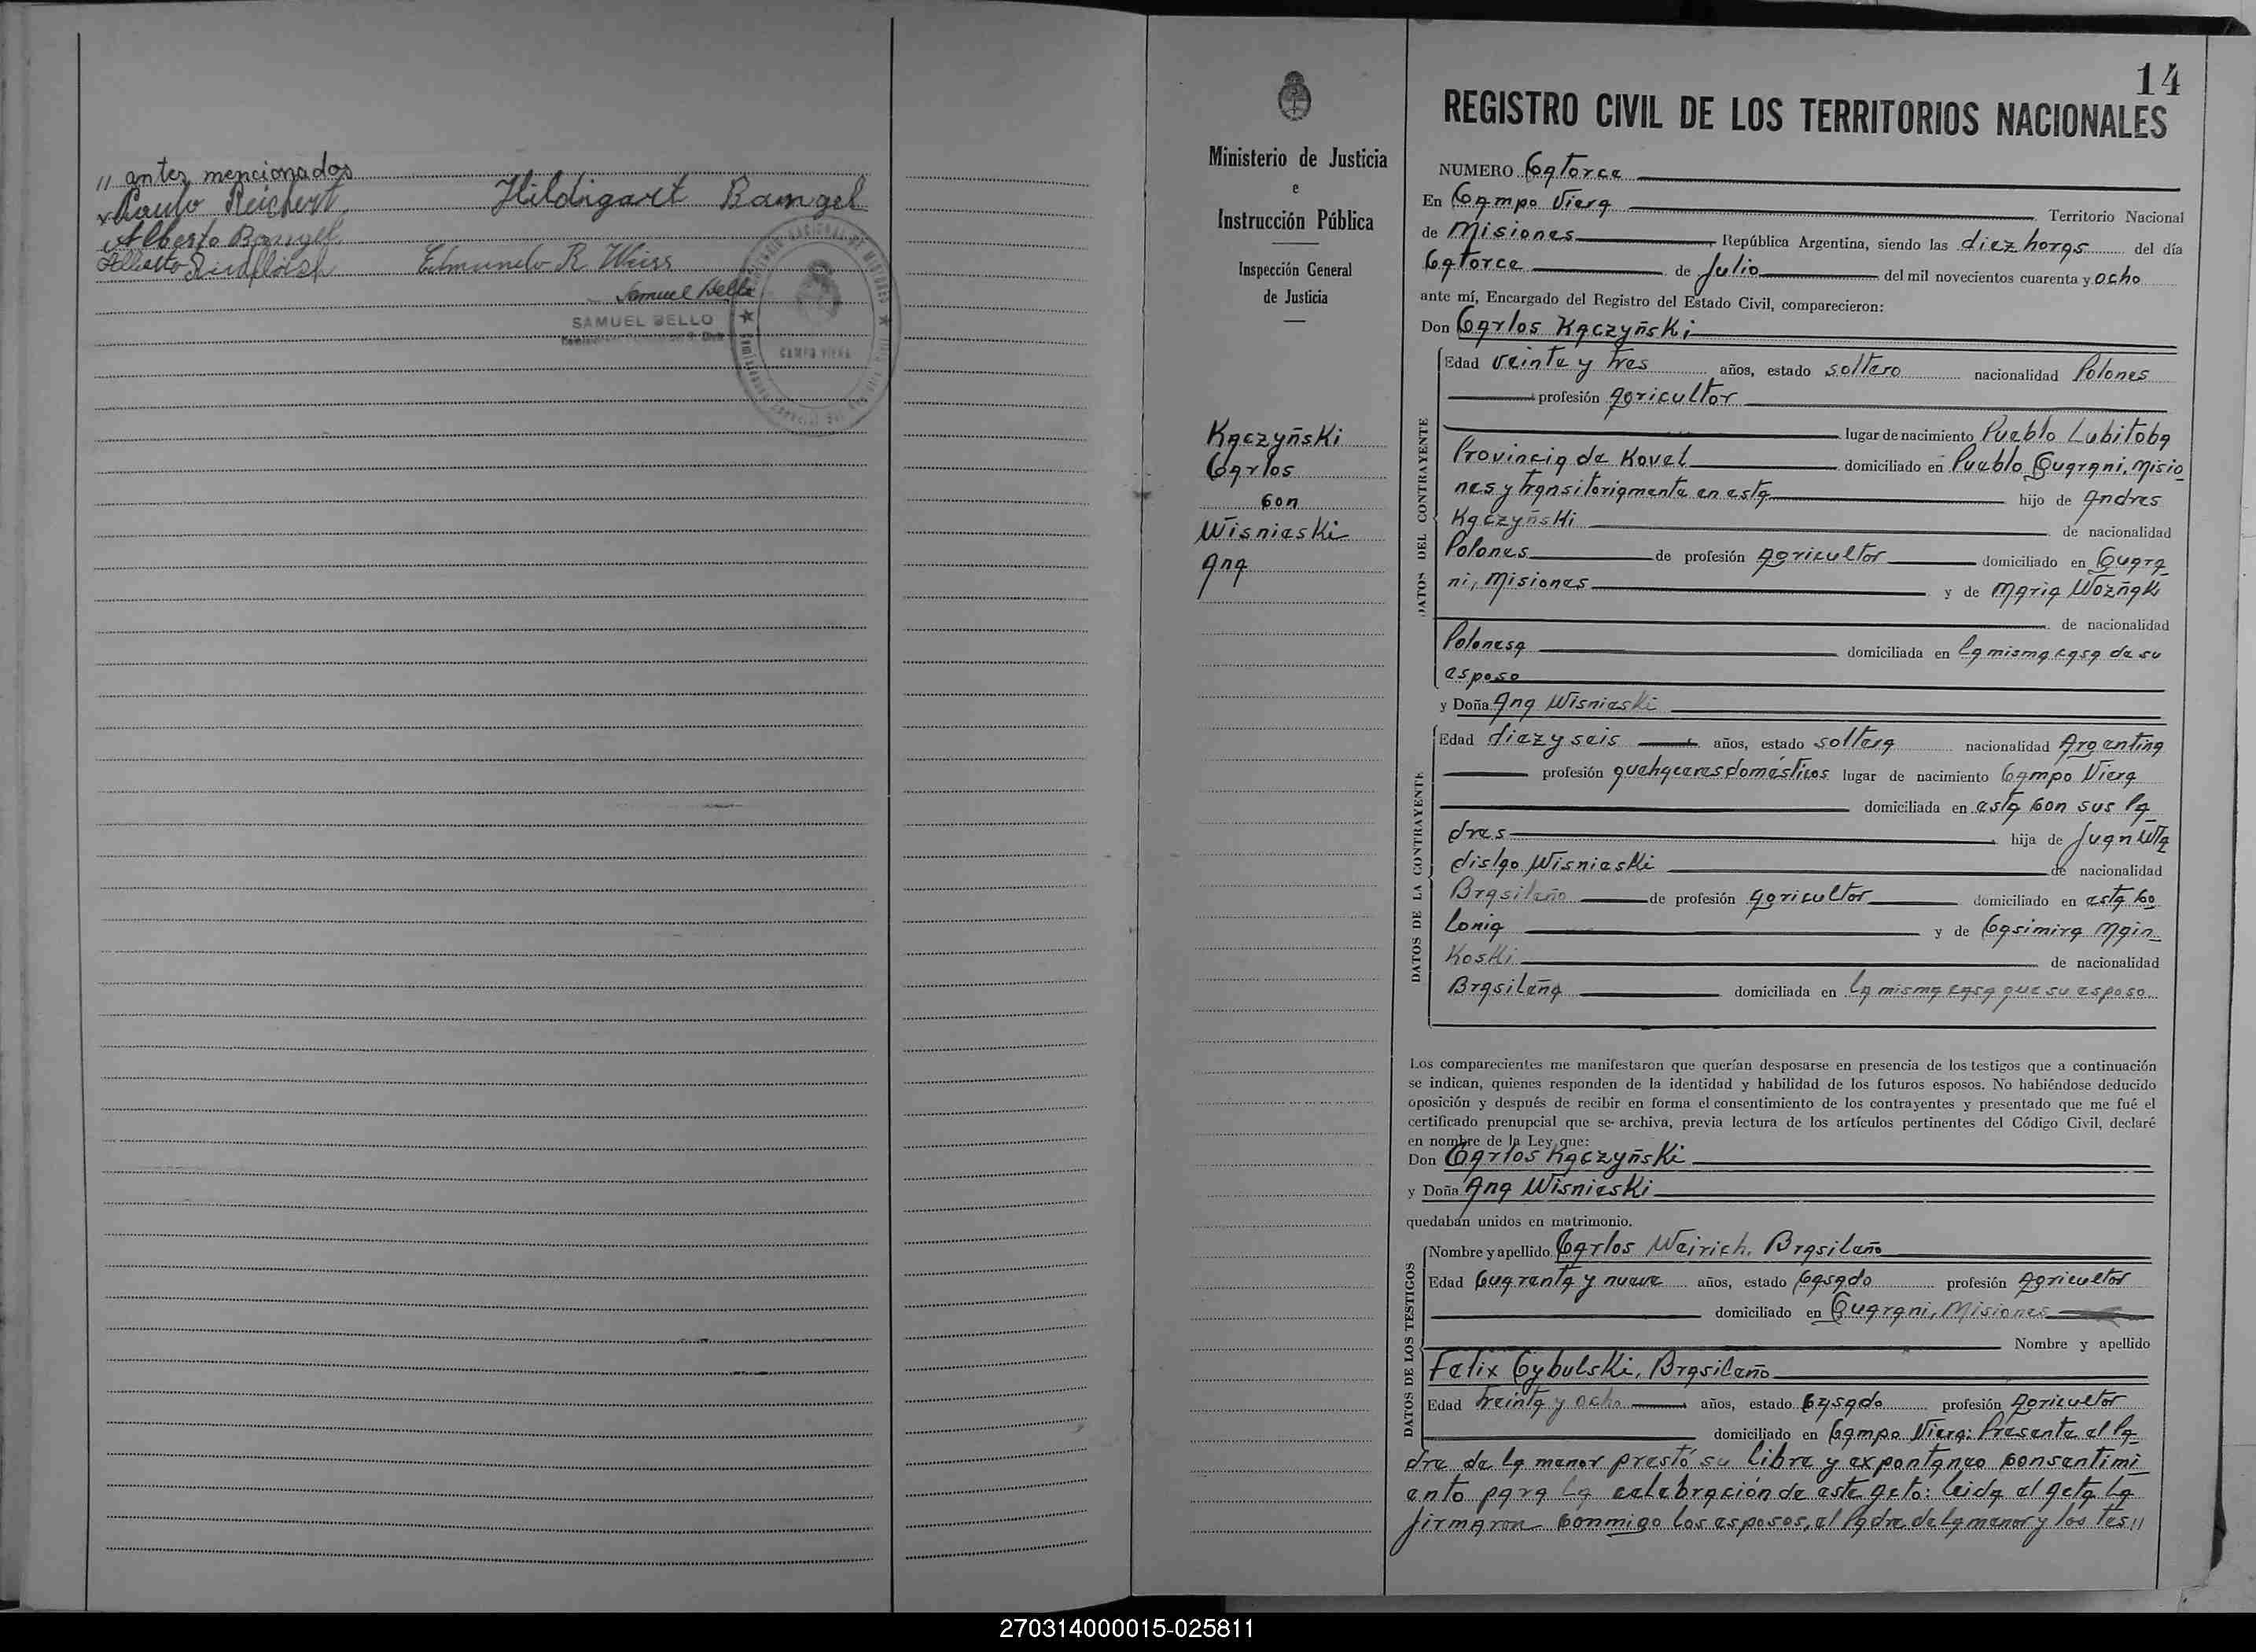 " antes mencionados
Paulo Reichert
Hildigart Bamgel
Alberto Bamgel
Alberto
Edmundo R. Weiss
Samuel Bello
SAMUEL BELLO
CAMPO VIERA
14
REGISTRO CIVIL DE LOS TERRITORIOS NACIONALES
Ministerio de Justicia
e
Instrucción Pública
Inspección General
de Justicia
Kaczyñski
Carlos
Con
Wisnieski
Ana
NUMERO Catorce
En Campo Viera Territorio Nacional
de Misiones República Argentina, siendo las diez horas del día
Catorce de Julio del mil novecientos cuarenta y ocho
ante mí, Encargado del Registro del Estado Civil, comparecieron:
Don Carlos Kaczyñski
DATOS DEL CONTRAYENTE
Edad veinte y tres años, estado soltero nacionalidad Polones
profesión agricultor
lugar de nacimiento Pueblo Lubitoba
Provincia de Kovel domiciliado en Pueblo Guarani, Misio
nes y transitoriamente en esta hijo de Andres
Kaczyñski de nacionalidad
Polones de profesión Agricultor domiciliado en Guara
ni, Misiones y de Maria Wozñak
de nacionalidad
Polonesa domiciliada en la misma casa de su
esposo
y Doña Ana Wisnieski
DATOS DE LA CONTRAYENTE
Edad diez y seis años, estado soltera nacionalidad Argentina
profesión quehaceres domésticos lugar de nacimiento Campo Viera
domiciliada en esta Con sus Pa
dres hija de Juan Wla
dislao Wisnieski de nacionalidad
Brasileño de profesión agricultor domiciliado en esta Co
lonia y de Casimira Main
Koski de nacionalidad
Brasileña domiciliada en la misma casa que su esposo
Los comparecientes me manifestaron que querían desposarse en presencia de los testigos que a continuación
se indican, quienes responden de la identidad y habilidad de los futuros esposos. No habiéndose deducido
oposición y después de recibir en forma el consentimiento de los contrayentes y presentado que me fué el
certificado prenupcial que se archiva, previa lectura de los artículos pertinentes del Código Civil, declaré
en nombre de la Ley que:
Don Carlos Kaczyñski
y Doña Ana Wisnieski
quedaban unidos en matrimonio.
DATOS DE LOS TESTIGOS
Nombre y apellido Carlos Weirich, Brasileño
Edad Cuarenta y nueve años, estado Casado profesión Agricultor
domiciliado en Guarani, Misiones
Nombre y apellido
Felix Cybulski, Brasileño
Edad treinta y ocho años, estado Casado profesión Agricultor
domiciliado en Campo Viera: Presente el Pa
dre de la menor prestó su libre y expontaneo Consentimi
ento para la celebración de este acto: leida el acta la
firmaron Conmigo los esposos, el Padre de la menor y los tes"
270314000015-025811